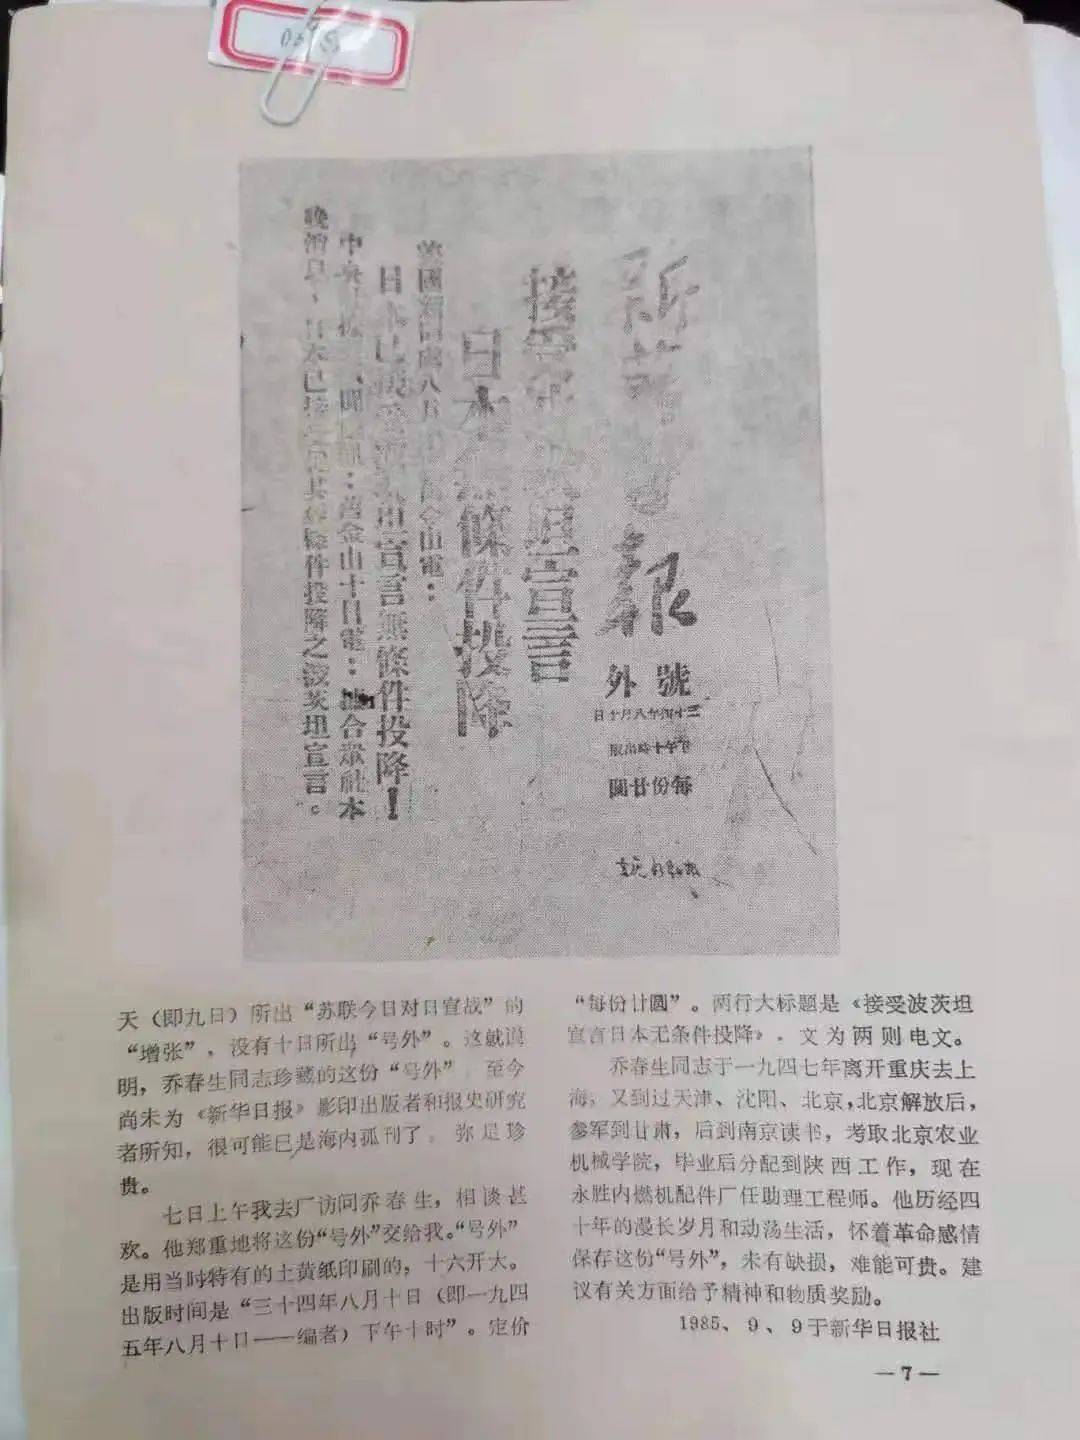 新華日報
號外
三十四年八月十日
下午十時出版
每份廿圓
接受波茨坦宣言
日本無條件投降
金山電：
日本已接受波茨坦宣言無條件投降！
中央社 舊金山十日電：據合眾社本
晚消息，日本已接受 條件投降之波茨坦宣言。
天（即九日）所出“苏联今日对日宣战”的
“增张”，没有十日所出“号外”。这就说
明，乔春生同志珍藏的这份“号外”，至今
尚未为《新华日报》影印出版者和报史研究
者所知，很可能已是海内孤刊了。弥足珍
贵。
七日上午我去厂访问乔春生，相谈甚
欢。他郑重地将这份“号外”交给我。“号外”
是用当时特有的土黄纸印刷的，十六开大。
出版时间是“三十四年八月十日（即一九四
五年八月十日——编者）下午十时”。定价
“每份廿圆”。两行大标题是《接受波茨坦
宣言日本无条件投降》。文为两则电文。
乔春生同志于一九四七年离开重庆去上
海，又到过天津、沈阳、北京，北京解放后，
参军到甘肃，后到南京读书，考取北京农业
机械学院，毕业后分配到陕西工作，现在
永胜内燃机配件厂任助理工程师。他历经四
十年的漫长岁月和动荡生活，怀着革命感情
保存这份“号外”，未有缺损，难能可贵。建
议有关方面给予精神和物质奖励。
1985、9、9于新华日报社
—7—